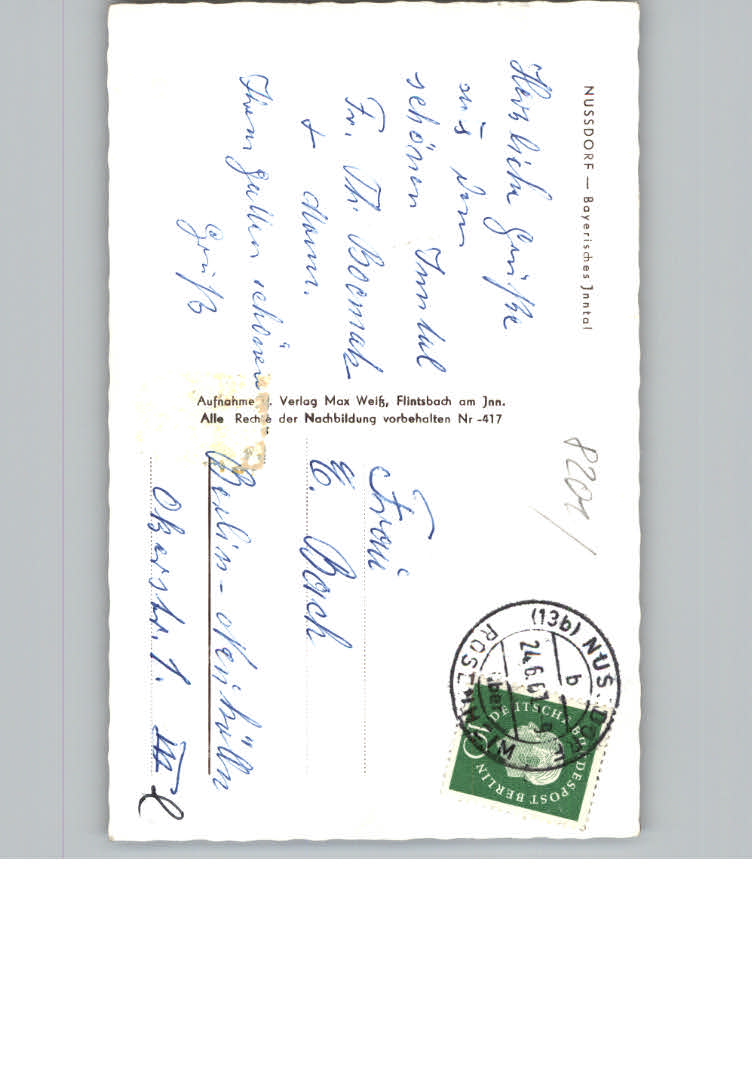 NUSSDORF — Bayerisches Jnntal
Herzliche Grüße
aus dem
schönen Inntal
Fr. Th.
+ Mann.
Ihrem Gatten schönen
Gruß
Aufnahme u. Verlag Max Weiß, Flintsbach am Jnn.
Alle Rechte der Nachbildung vorbehalten Nr -417
8201/
(13b) NUSSDORF
b
24.6.6
ROSENHEIM
DEUTSCHE BUNDESPOST BERLIN
Frau
E. Bach
Berlin-Neukölln
Okerstr. 1. III